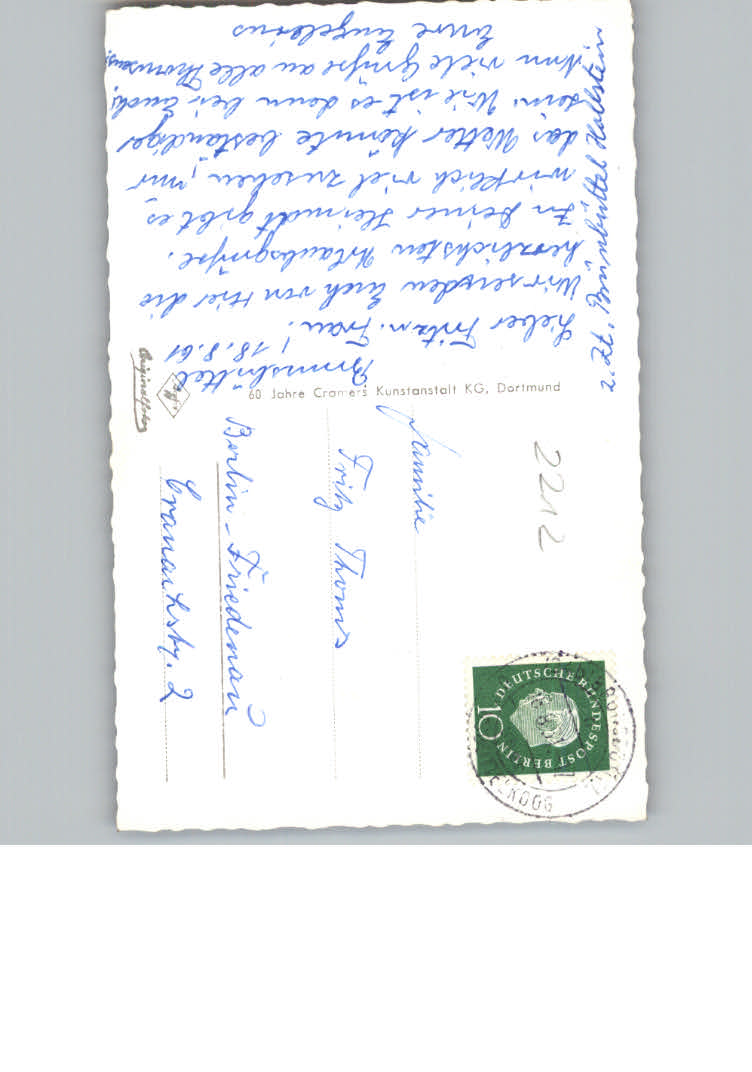 Brunsbüttel
18.8.61
Lieber Fritz u. Frau!
Wir senden Euch von hier die
herzlichsten Urlaubsgrüße.
In Deiner Heimat gibt es
wirklich viel zusehen, nur
das Wetter könnte beständiger
sein. Wie ist es denn bei Euch?
Nun viele Grüße an alle Thomsens,
Eure
z. Zt. Brunsbüttel Holstein
60 Jahre Cramers Kunstanstalt KG, Dortmund
Originalfoto
Agfa
2212
Familie
Fritz Thoms
Berlin-Friedenau
Cranachstr. 2
DEUTSCHE BUNDESPOST BERLIN
10
KOOG